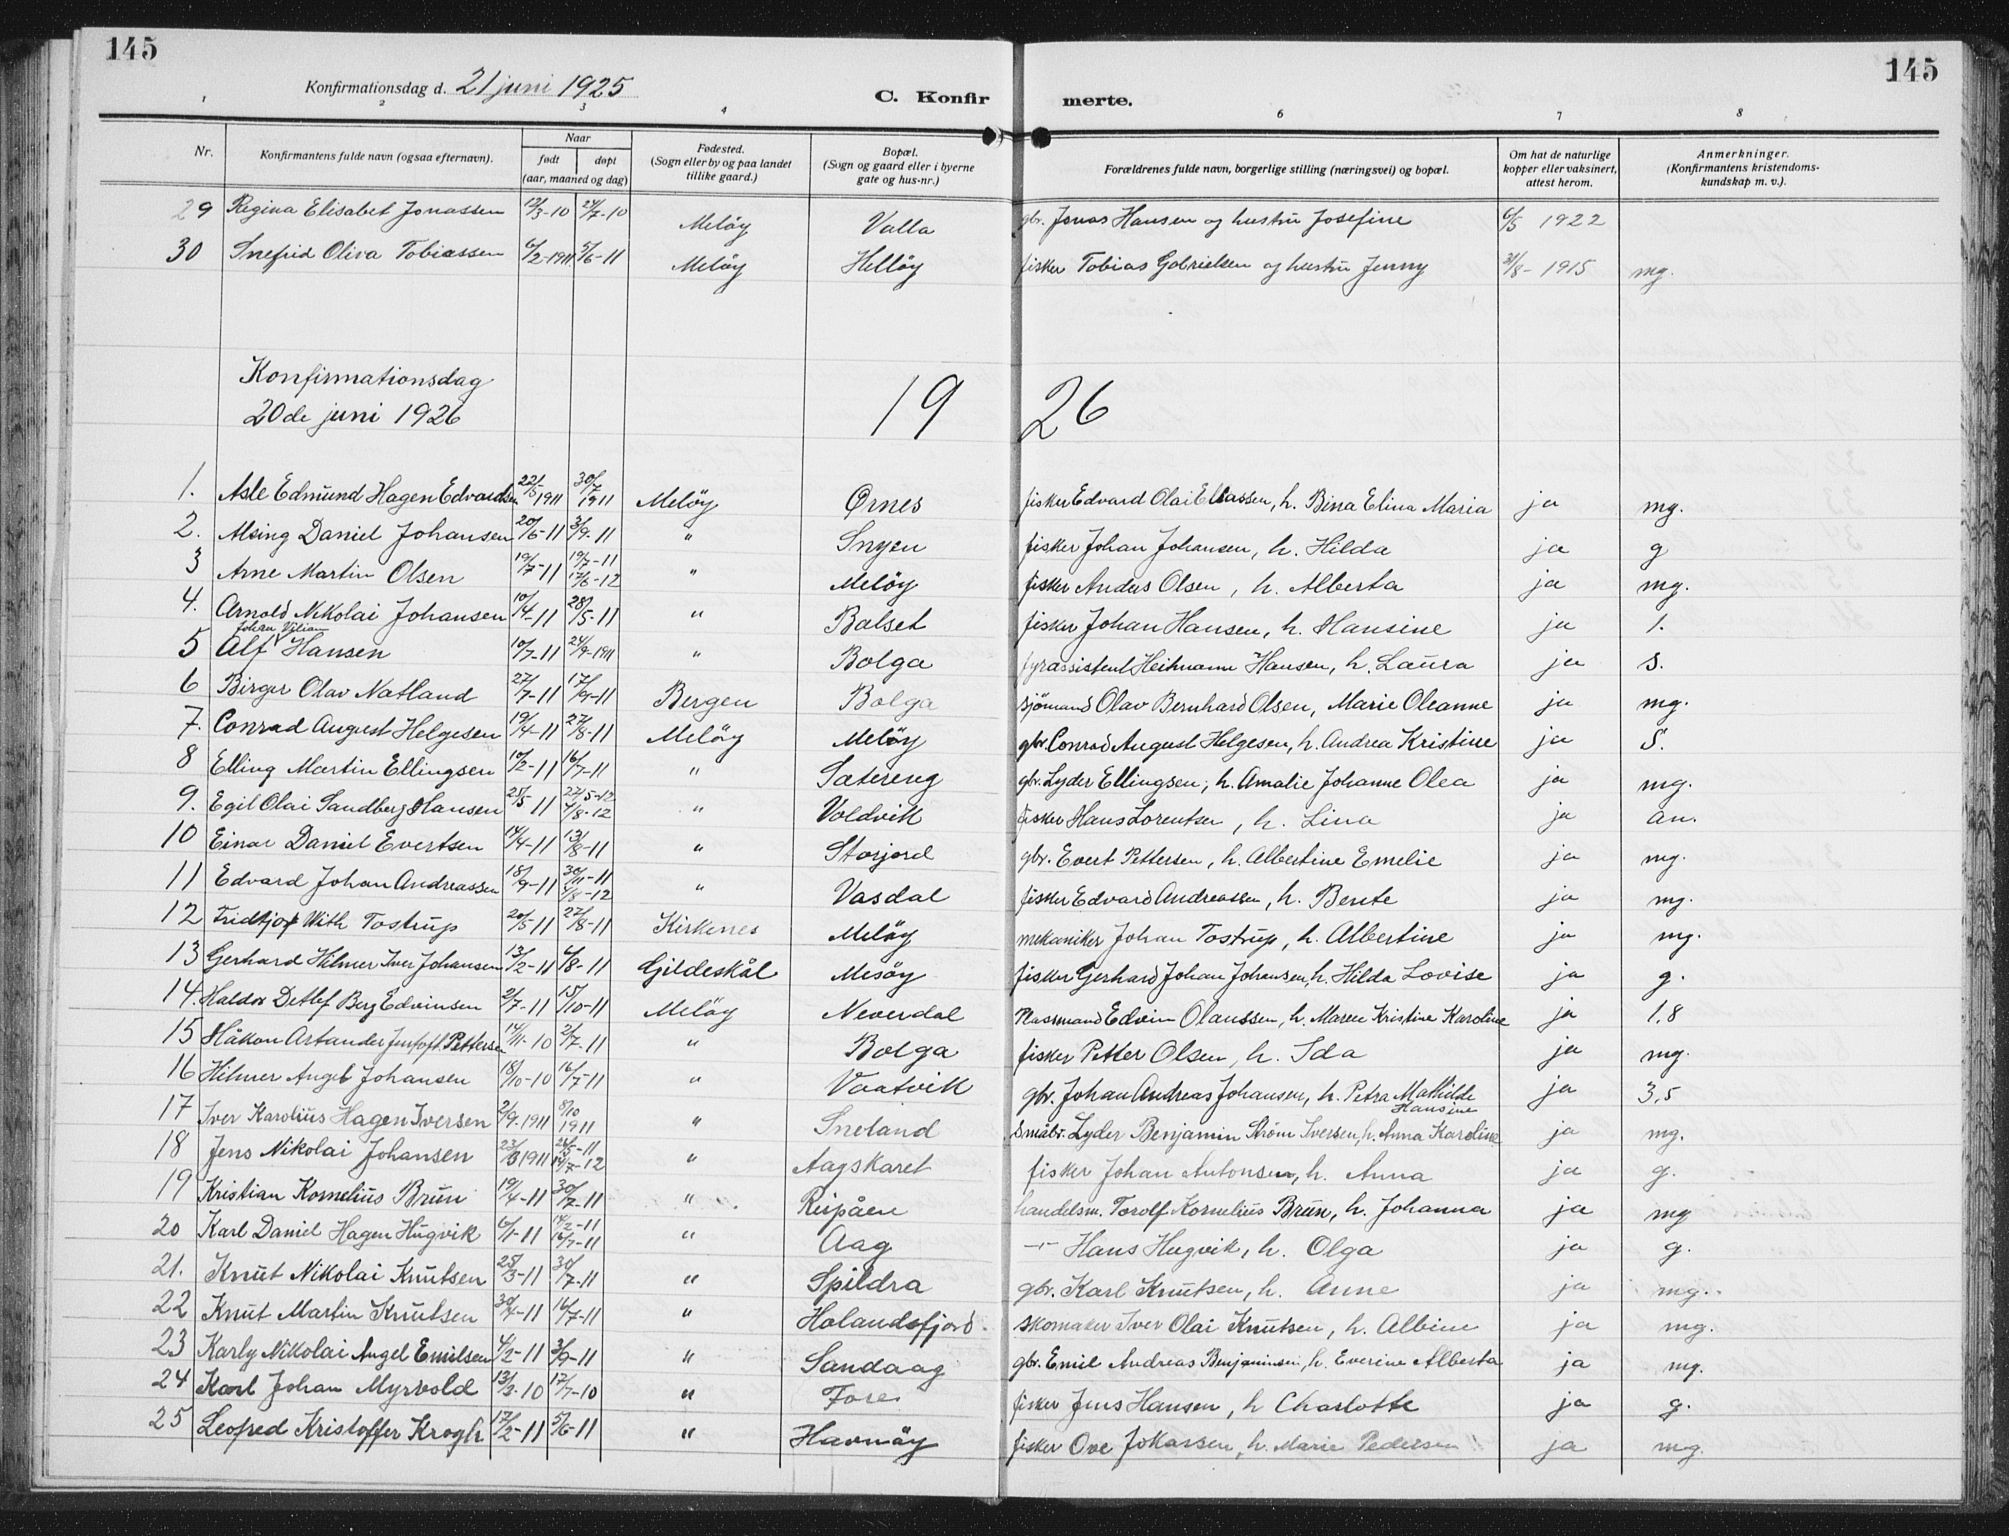 145
145
Konfirmationsdag d. 21 juni 1925
C. Konfir merte.
1 2 3 4 6 7 8
Nr.
Konfirmantens fulde navn (ogsaa efternavn).
Naar
født døpt
(aar, maaned og dag)
Fødested.
(Sogn eller by og paa landet
tillike gaard.)
Bopæl.
(Sogn og gaard eller i byerne
gate og hus-nr.)
Forældrenes fulde navn, borgerlige stilling (næringsvei) og bopæl.
Om hat de naturlige
kopper eller vaksinert,
attest herom.
Anmerkninger.
(Konfirmantens kristendoms-
kundskap m. v.).
29 Regina Elisabet Jonassen 12/3-10 24/7-10 Meløy Valla gbr. Jonas Hansen og hustru Josefine 6/5 1922
30 Snefrid Oliva Tobiassen 6/2-1911 5/6-11 Meløy Helløy fisker Tobias Gabrielsen og hustru Jenny 31/8-1915 mg.
Konfirmationsdag
20de juni 1926
19 26
1. Asle Edmund Hagen Edvardsen 22/5 1911 30/7 1911 Meløy Ørnes fisker Edvard Olai Eliassen, h. Bina Elina Maria ja mg.
2. Alsing Daniel Johansen 20/6-11 3/9-11 " Snyen fisker Johan Johansen, h. Hilda ja g
3 Arne Martin Olsen 19/7-11 19/7-11 17/6-12 " Meløy fisker Anders Olsen, h. Alberta ja mg.
4. Arnold Nikolai Johansen 10/4-11 28/5-11 " Balset fisker Johan Hansen, h. Hansine ja 1.
Johan Vilian
5 Alf Hansen 10/7-11 24/9-1911 " Bolga fyrassistent Heitmann Hansen, h. Laura ja s.
6 Birger Olav Natland 27/7-11 17/9-11 Bergen Bolga sjømand Olav Bernhard Olsen, Marie Oleanne ja mg.
7. Conrad August Helgesen 19/4-11 27/8-11 Meløy Meløy gbr. Conrad August Helgesen, h. Andrea Kristine ja S.
8 Elling Martin Ellingsen 10/2-11 16/7-11 " Sætereng gbr. Lyder Ellingsen, h. Amalie Johanne Olea ja mg.
9. Egil Olai Sandberg Hansen 25/5 11 27/5-12 4/8-12 " Voldvik fisker Hans Lorentsen, h. Lina ja an.
10 Einar Daniel Evertsen 14/4-11 13/8-11 " Storjord gbr. Evert Pettersen, h. Albertine Emelie ja mg.
11 Edvard Johan Andreassen 18/9-11 30/11-11 4/8-12 " Vasdal fisker Edvard Andreassen, h. Bente ja mg.
12 Fridtjof With Tostrup 20/5-11 27/8-11 Kirkenes Meløy mekaniker Johan Tostrup, h. Albertine ja mg.
13 Gerhard Hilmer Iver Johansen 13/2-11 6/8-11 Gildeskål Mesøy fisker Gerhard Johan Johansen, h. Hilda Lovise ja g.
14. Haldor Detlef Berg Edvinsen 2/7-11 15/10-11 Meløy Neverdal Edvin Olaussen, h. Maren Kristine Karoline ja 1.8
15 Håkon Astander Justoft Pettersen 14/11-10 2/7-11 " Bolga fisker Petter Olsen, h. Ida ja mg.
16 Hilmer Angel Johansen 18/10-10 16/7-11 " Vaatvik gbr. Johan Andreas Johansen, h. Petra Mathilde Hansine ja 3.5
17 Iver Karolius Hagen Iversen 2/9-1911 8/10 1911 " Sneland småbr. Lyder Benjamin Strøm Iversen, h. Anna Karoline ja mg.
18 Jens Nikolai Johansen 23/3 1911 26/3-11 14/7-12 " Aagskaret fisker Johan Antonsen, h. Anna ja g.
19 Kristian Kornelius Brun 19/4-11 30/7-11 " Reipåen handelsm. Torolf Kornelius Brun, h. Johanna ja mg
20 Karl Daniel Hagen Hugvik 6/1-11 14/2-11 16/7-11 " Aag -"- Hans Hugvik, h. Olga ja g.
21. Knut Nikolai Knutsen 25/3-11 30/7-11 " Spildra gbr. Karl Knutsen, h. Anne ja mg.
22 Knut Martin Knutsen 30/4-11 16/7-11 " Holandsfjord. skomaker Iver Olai Knutsen, h. Albine ja mg.
23 Karly Nikolai Angel Emilsen 4/2-11 3/9-11 " Sandaag gbr. Emil Andreas Benjaminsen, h. Everine Alberta ja mg.
24 Karl Johan Myrvold 13/3-10 17/7-10 " Fore fisker Jens Hansen, h Charlotte ja g.
25 Leofred Kristoffer Krogh 17/2-11 5/6-11 " Havnøy fisker Ove Johansen, h. Marie Pedersen ja mg.